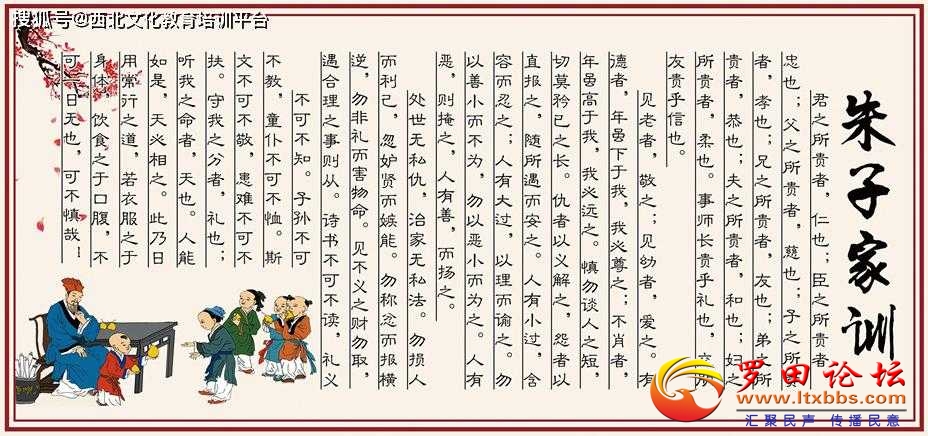 搜狐号@西北文化教育培训平台
朱子家训
君之所贵者，仁也；臣之所贵者，
忠也；父之所贵者，慈也；子之所贵
者，孝也；兄之所贵者，友也；弟之所
贵者，恭也；夫之所贵者，和也；妇之
所贵者，柔也。事师长贵乎礼也，交朋
友贵乎信也。
见老者，敬之；见幼者，爱之。有
德者，年虽下于我，我必尊之；不肖者，
年虽高于我，我必远之。慎勿谈人之短，
切莫矜己之长。仇者以义解之，怨者以
直报之，随所遇而安之。人有小过，含
容而忍之；人有大过，以理而谕之。勿
以善小而不为，勿以恶小而为之。人有
恶，则掩之，人有善，而扬之。
处世无私仇，治家无私法。勿损人
而利己，忽妒贤而嫉能。勿称忿而报横
逆，勿非礼而害物命。见不义之财勿取，
遇合理之事则从。诗书不可不读，礼义
不可不知。子孙不可
不教，童仆不可不恤。斯
文不可不敬，患难不可不
扶。守我之分者，礼也；
听我之命者，天也。人能
如是，天必相之。此乃日
用常行之道，若衣服之于
身体，饮食之于口腹，不
可一日无也，可不慎哉！
罗田论坛
www.ltxbbs.com
汇聚民声 传播民意